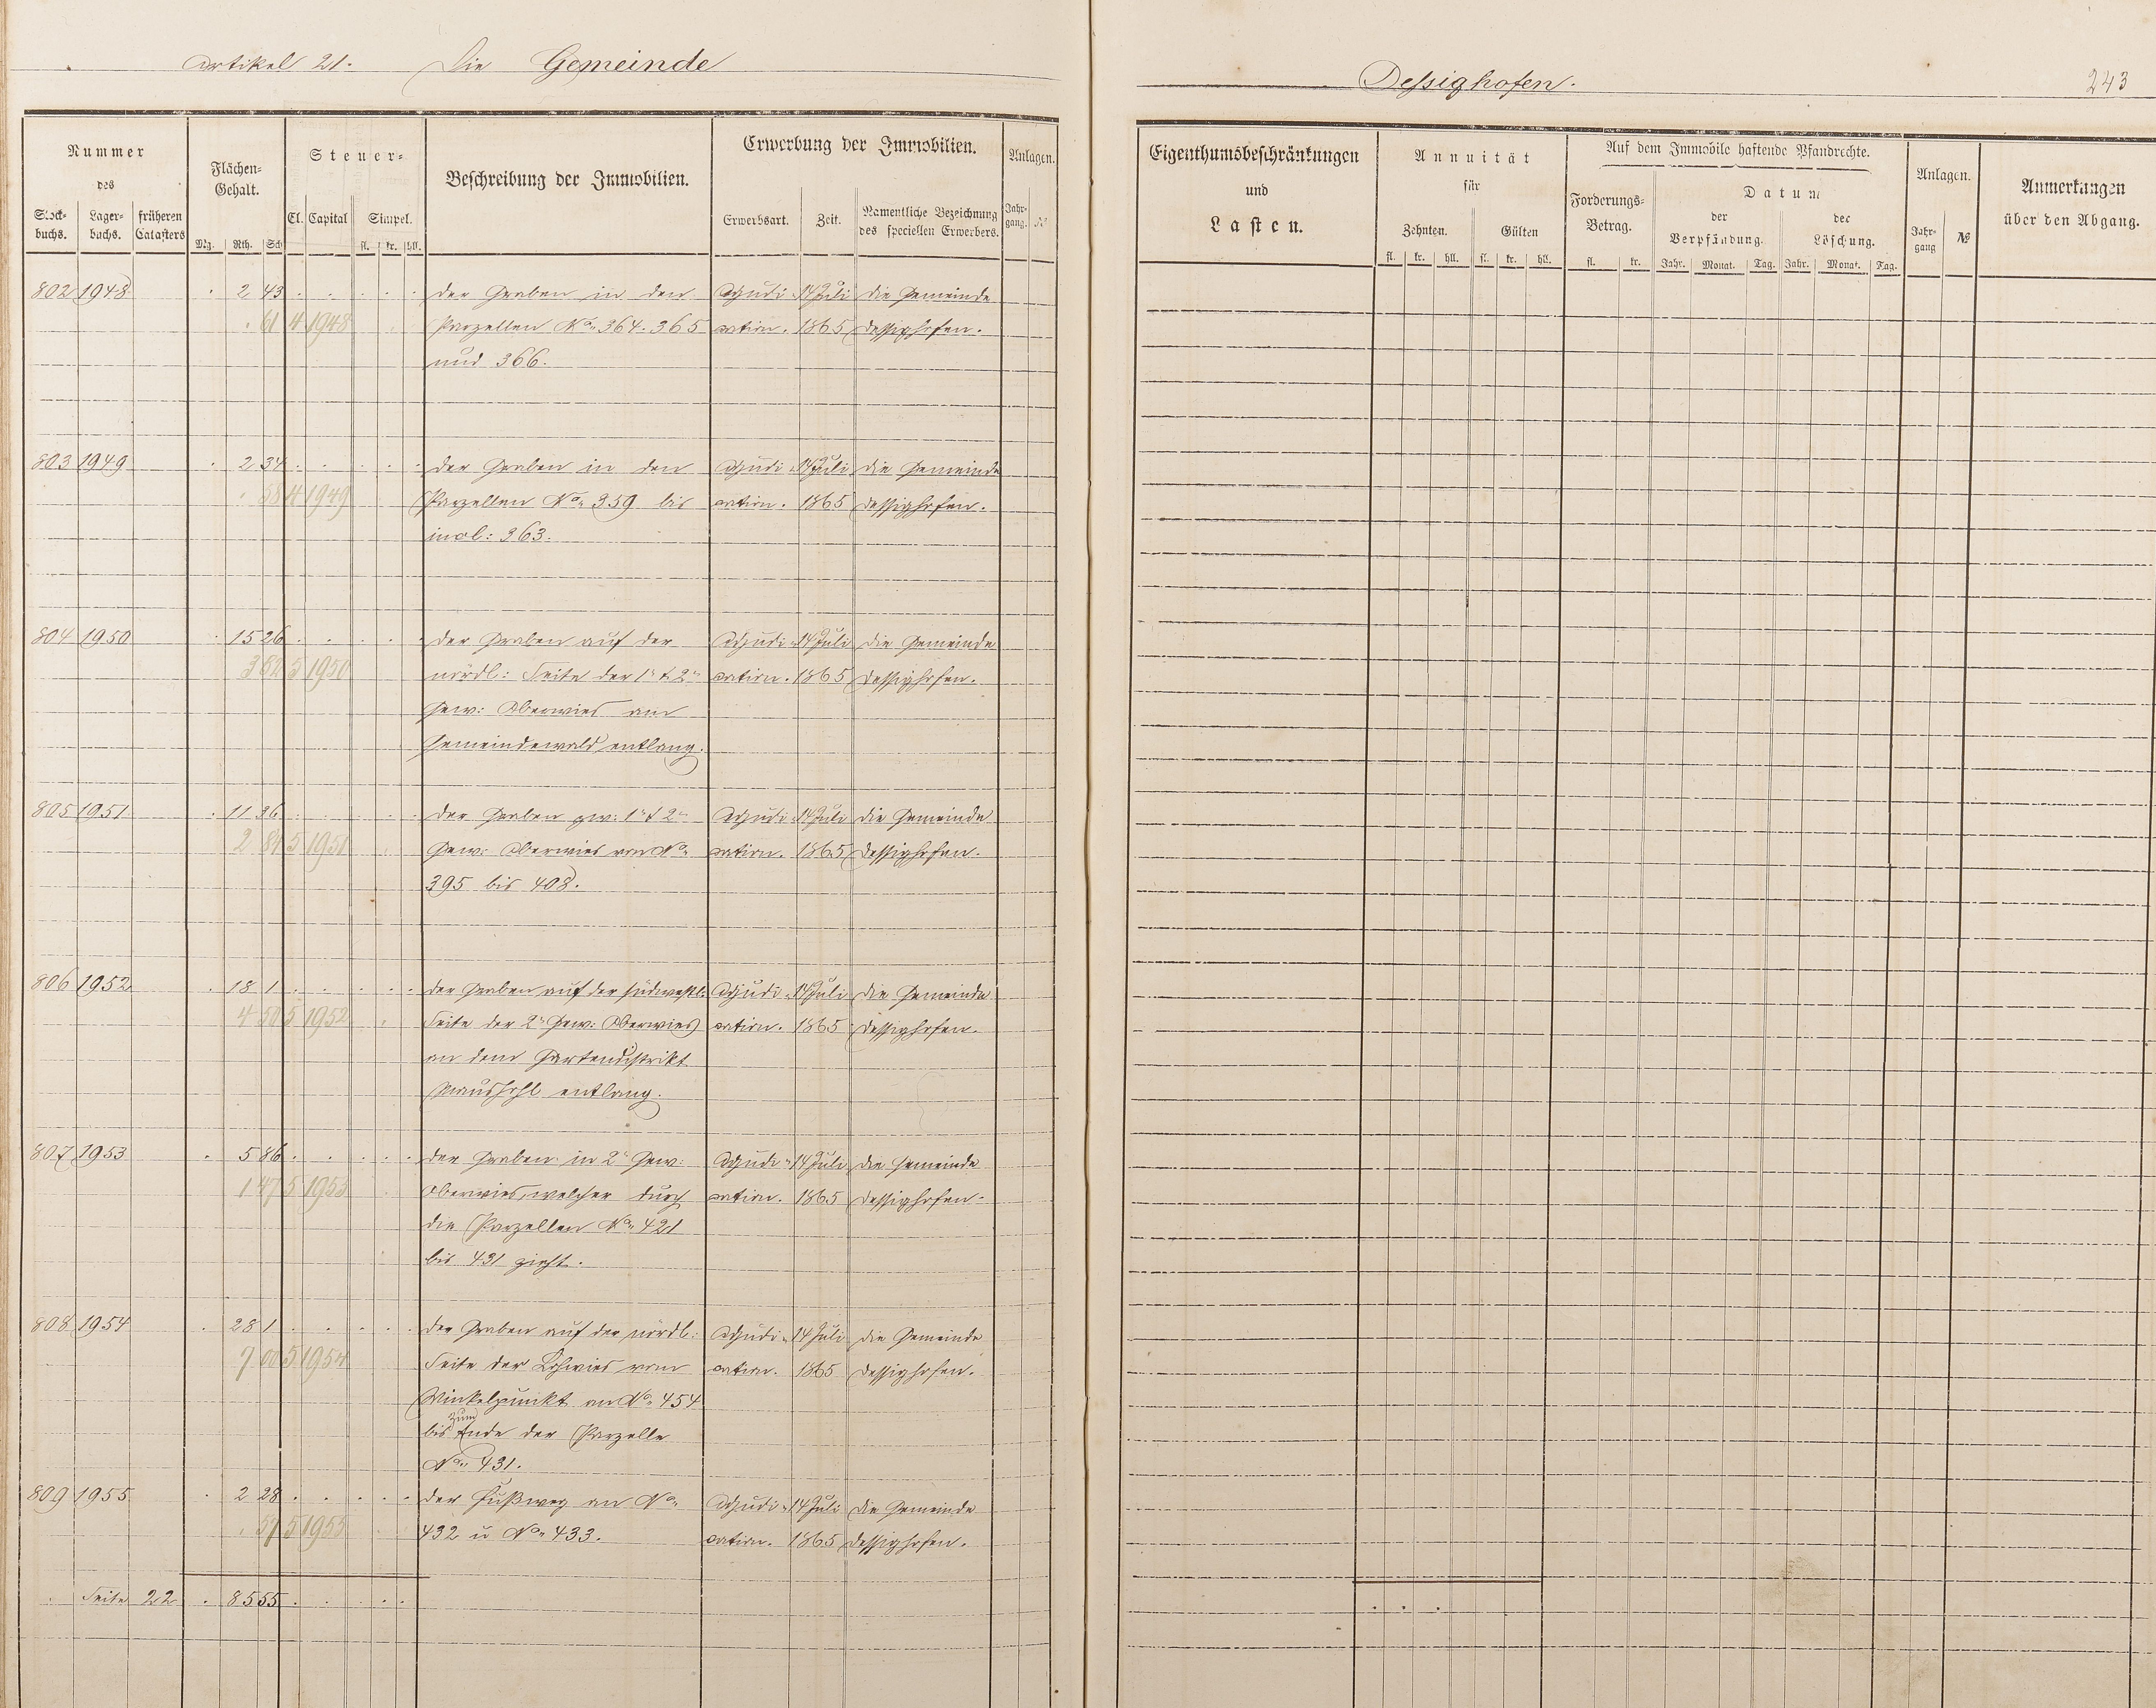 Artikel 21. Die Gemeinde
Dessighofen.
243
Nummer des
Stock-buchs. Lager-buchs. früheren Catasters
Flächen-Gehalt.
Mg. Rth. Sch
Steuer-
Cl. Capital Simpel.
fl. kr. hll.
Beschreibung der Immobilien.
Erwerbung der Immobilien.
Erwerbsart. Zeit. Namentliche Bezeichnung des speciellen Erwerbers.
Anlagen.
Jahr-gang. №
Eigenthumsbeschränkungen
und
Lasten.
Annuität
für
Zehnten. Gülten
fl. kr. hll. fl. kr. hll.
Auf dem Immobile haftende Pfandrechte.
Forderungs-Betrag.
fl. kr.
Datum
der Verpfändung. der Löschung.
Jahr. Monat. Tag. Jahr. Monat. Tag.
Anlagen.
Jahr-gang №
Anmerkungen
über den Abgang.
802 1948 . 2 43 . . . . . der Graben in den Adjudi- 14 Juli die Gemeinde
. 61 4 1948 Parzellen No. 364. 365 cation. 1865 Dessighofen.
und 366.
803 1949 . 2 34 . . . . . der Graben in den Adjudi- 14 Juli die Gemeinde
. 58 4 1949 Parzellen No. 359 bis cation. 1865 Dessighofen.
incl: 363.
804 1950 . 15 26 . . . . . der Graben auf der Adjudi- 14 Juli die Gemeinde
3 82 5 1950 nördl: Seite der 1n & 2n cation. 1865 Dessighofen.
Gew: Oberwies am
Gemeindewald entlang.
805 1951 . 11 36 . . . . . der Graben zw: 1n & 2n Adjudi- 14 Juli die Gemeinde
2 84 5 1951 Gew: Oberwies von No. cation. 1865 Dessighofen.
395 bis 408.
806 1952 . 18 1 . . . . . der Graben auf der südwestl: Adjudi- 14 Juli die Gemeinde
4 50 5 1952 Seite der 2n Gew: Oberwies cation. 1865 Dessighofen.
an dem Gartendistrikt
Maushohl entlang.
807 1953 . 5 86 . . . . . der Graben in 2n Gew: Adjudi- 14 Juli die Gemeinde
1 47 5 1953 Oberwies, welcher durch cation. 1865 Dessighofen.
die Parzellen No. 421
bis 431 zieht.
808 1954 . 28 1 . . . . . der Graben auf der nördl: Adjudi- 14 Juli die Gemeinde
7 00 5 1954 Seite der Lohwies vom cation. 1865 Dessighofen.
Winkelpunkt an No. 454
bis zum Ende der Parzelle
No. 431.
809 1955 . 2 28 . . . . . der Fußweg an No. Adjudi- 14 Juli die Gemeinde
. 57 5 1955 432 u No. 433. cation. 1865 Dessighofen.
. Seite 22 . 85 55 . . . . .
. . .